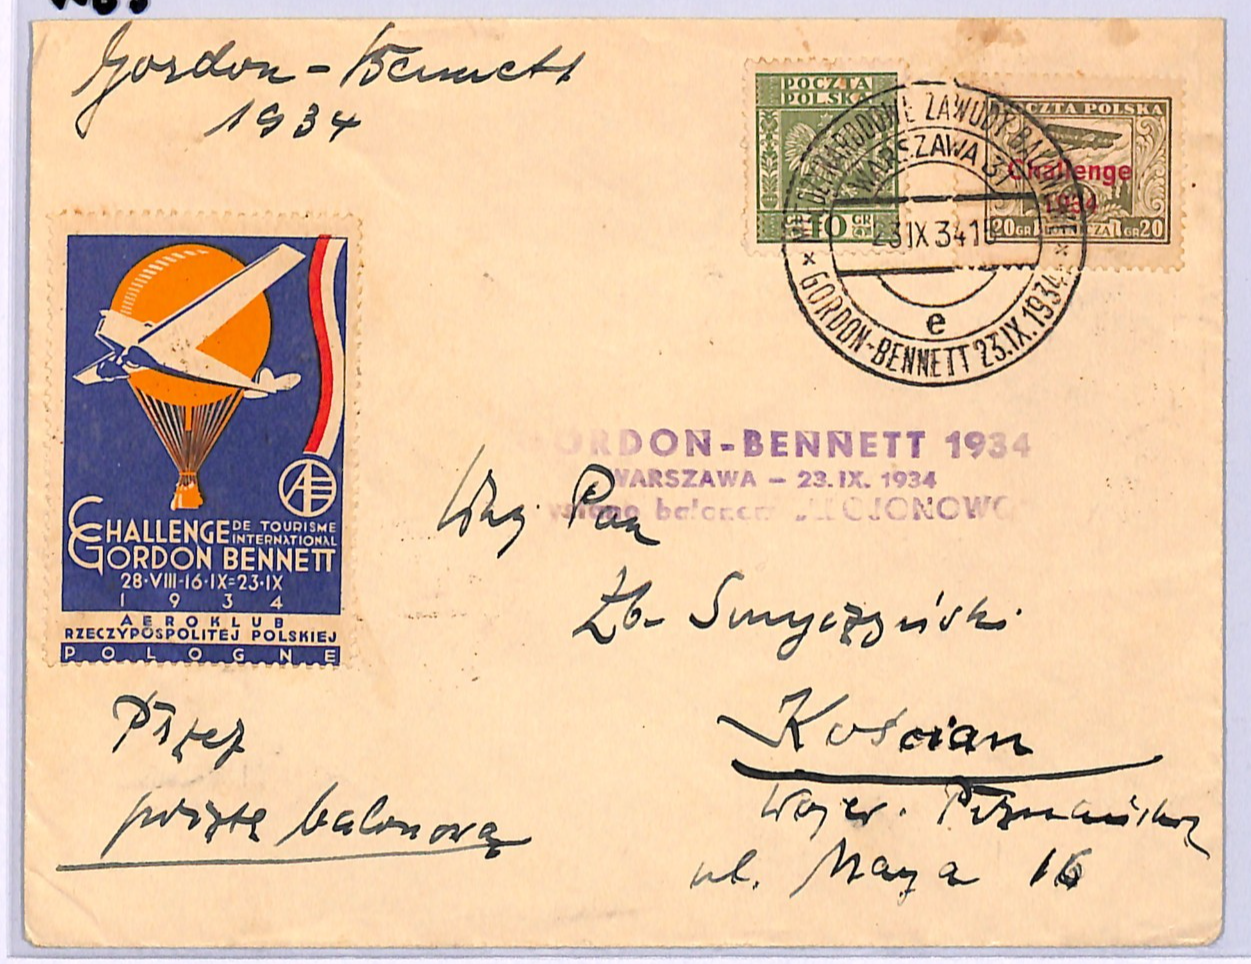 Gordon-Bennett
1934
POCZTA
POLSKA
10 GR
POCZTA POLSKA
Challenge
1934
20 GR GR 20
MIĘDZYNARODOWE ZAWODY BALONOWE
WARSZAWA 31
23 IX 34 1
e
* GORDON-BENNETT 23.IX.1934 *
CHALLENGE DE TOURISME INTERNATIONAL
GORDON BENNETT
28·VIII-16·IX=23·IX
1 9 3 4
AEROKLUB
RZECZYPOSPOLITEJ POLSKIEJ
POLOGNE
ORDON-BENNETT 1934
WARSZAWA – 23. IX. 1934
balonem
Pan
Zb.
Kościan
Przez
pocztę balonową
ul. Maya 16